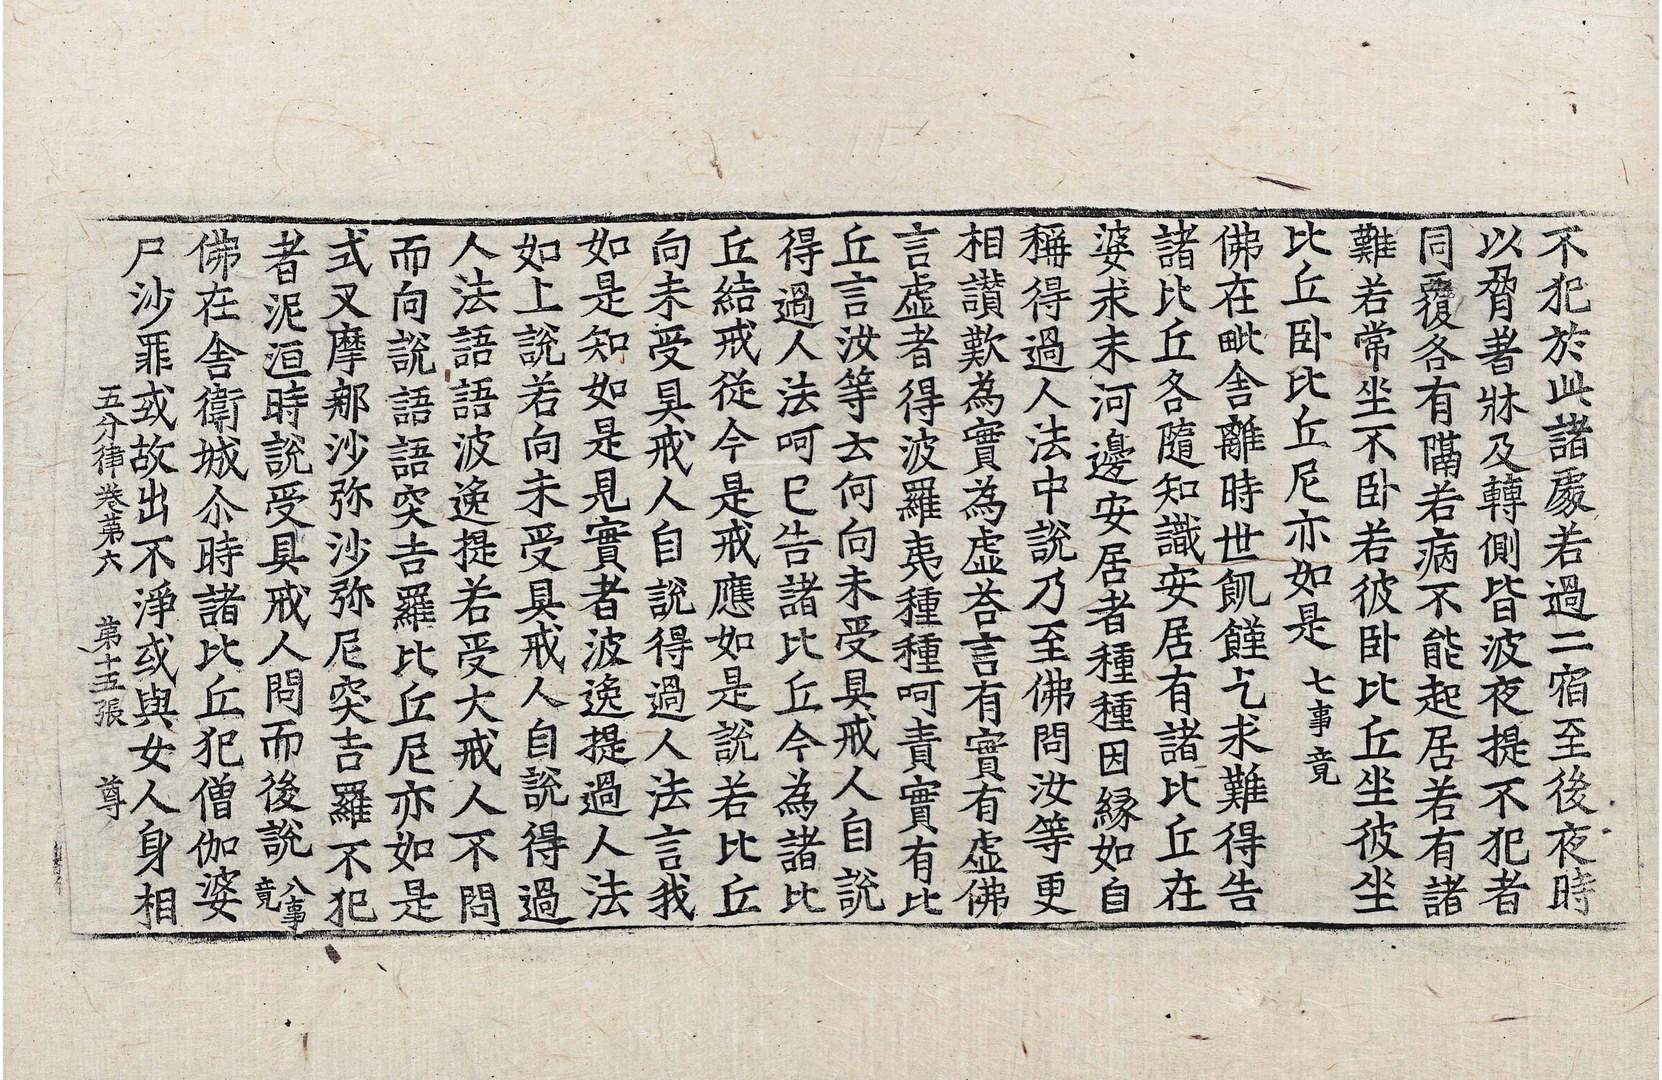 不犯於此諸處若過二宿至後夜時
以脅著牀及轉側皆波夜提不犯者
同覆各有隔若病不能起居若有諸
難若常坐不卧若彼卧比丘坐彼坐
比丘卧比丘尼亦如是七事竟
佛在毗舍離時世飢饉乞求難得告
諸比丘各隨知識安居有諸比丘在
婆求末河邊安居者種種因縁如自
稱得過人法中說乃至佛問汝等更
相讃歎為實為虛荅言有實有虛佛
言虛者得波羅夷種種呵責實有比
丘言汝等云何向未受具戒人自說
得過人法呵已告諸比丘今為諸比
丘結戒從今是戒應如是說若比丘
向未受具戒人自說得過人法言我
如是知如是見實者波逸提過人法
如上說若向未受具戒人自說得過
人法語語波逸提若受大戒人不問
而向說語語突吉羅比丘尼亦如是
式叉摩那沙弥沙弥尼突吉羅不犯
者泥洹時說受具戒人問而後說八事竟
佛在舍衛城尒時諸比丘犯僧伽婆
尸沙罪或故出不淨或與女人身相
五分律卷第六 第十五張 尊